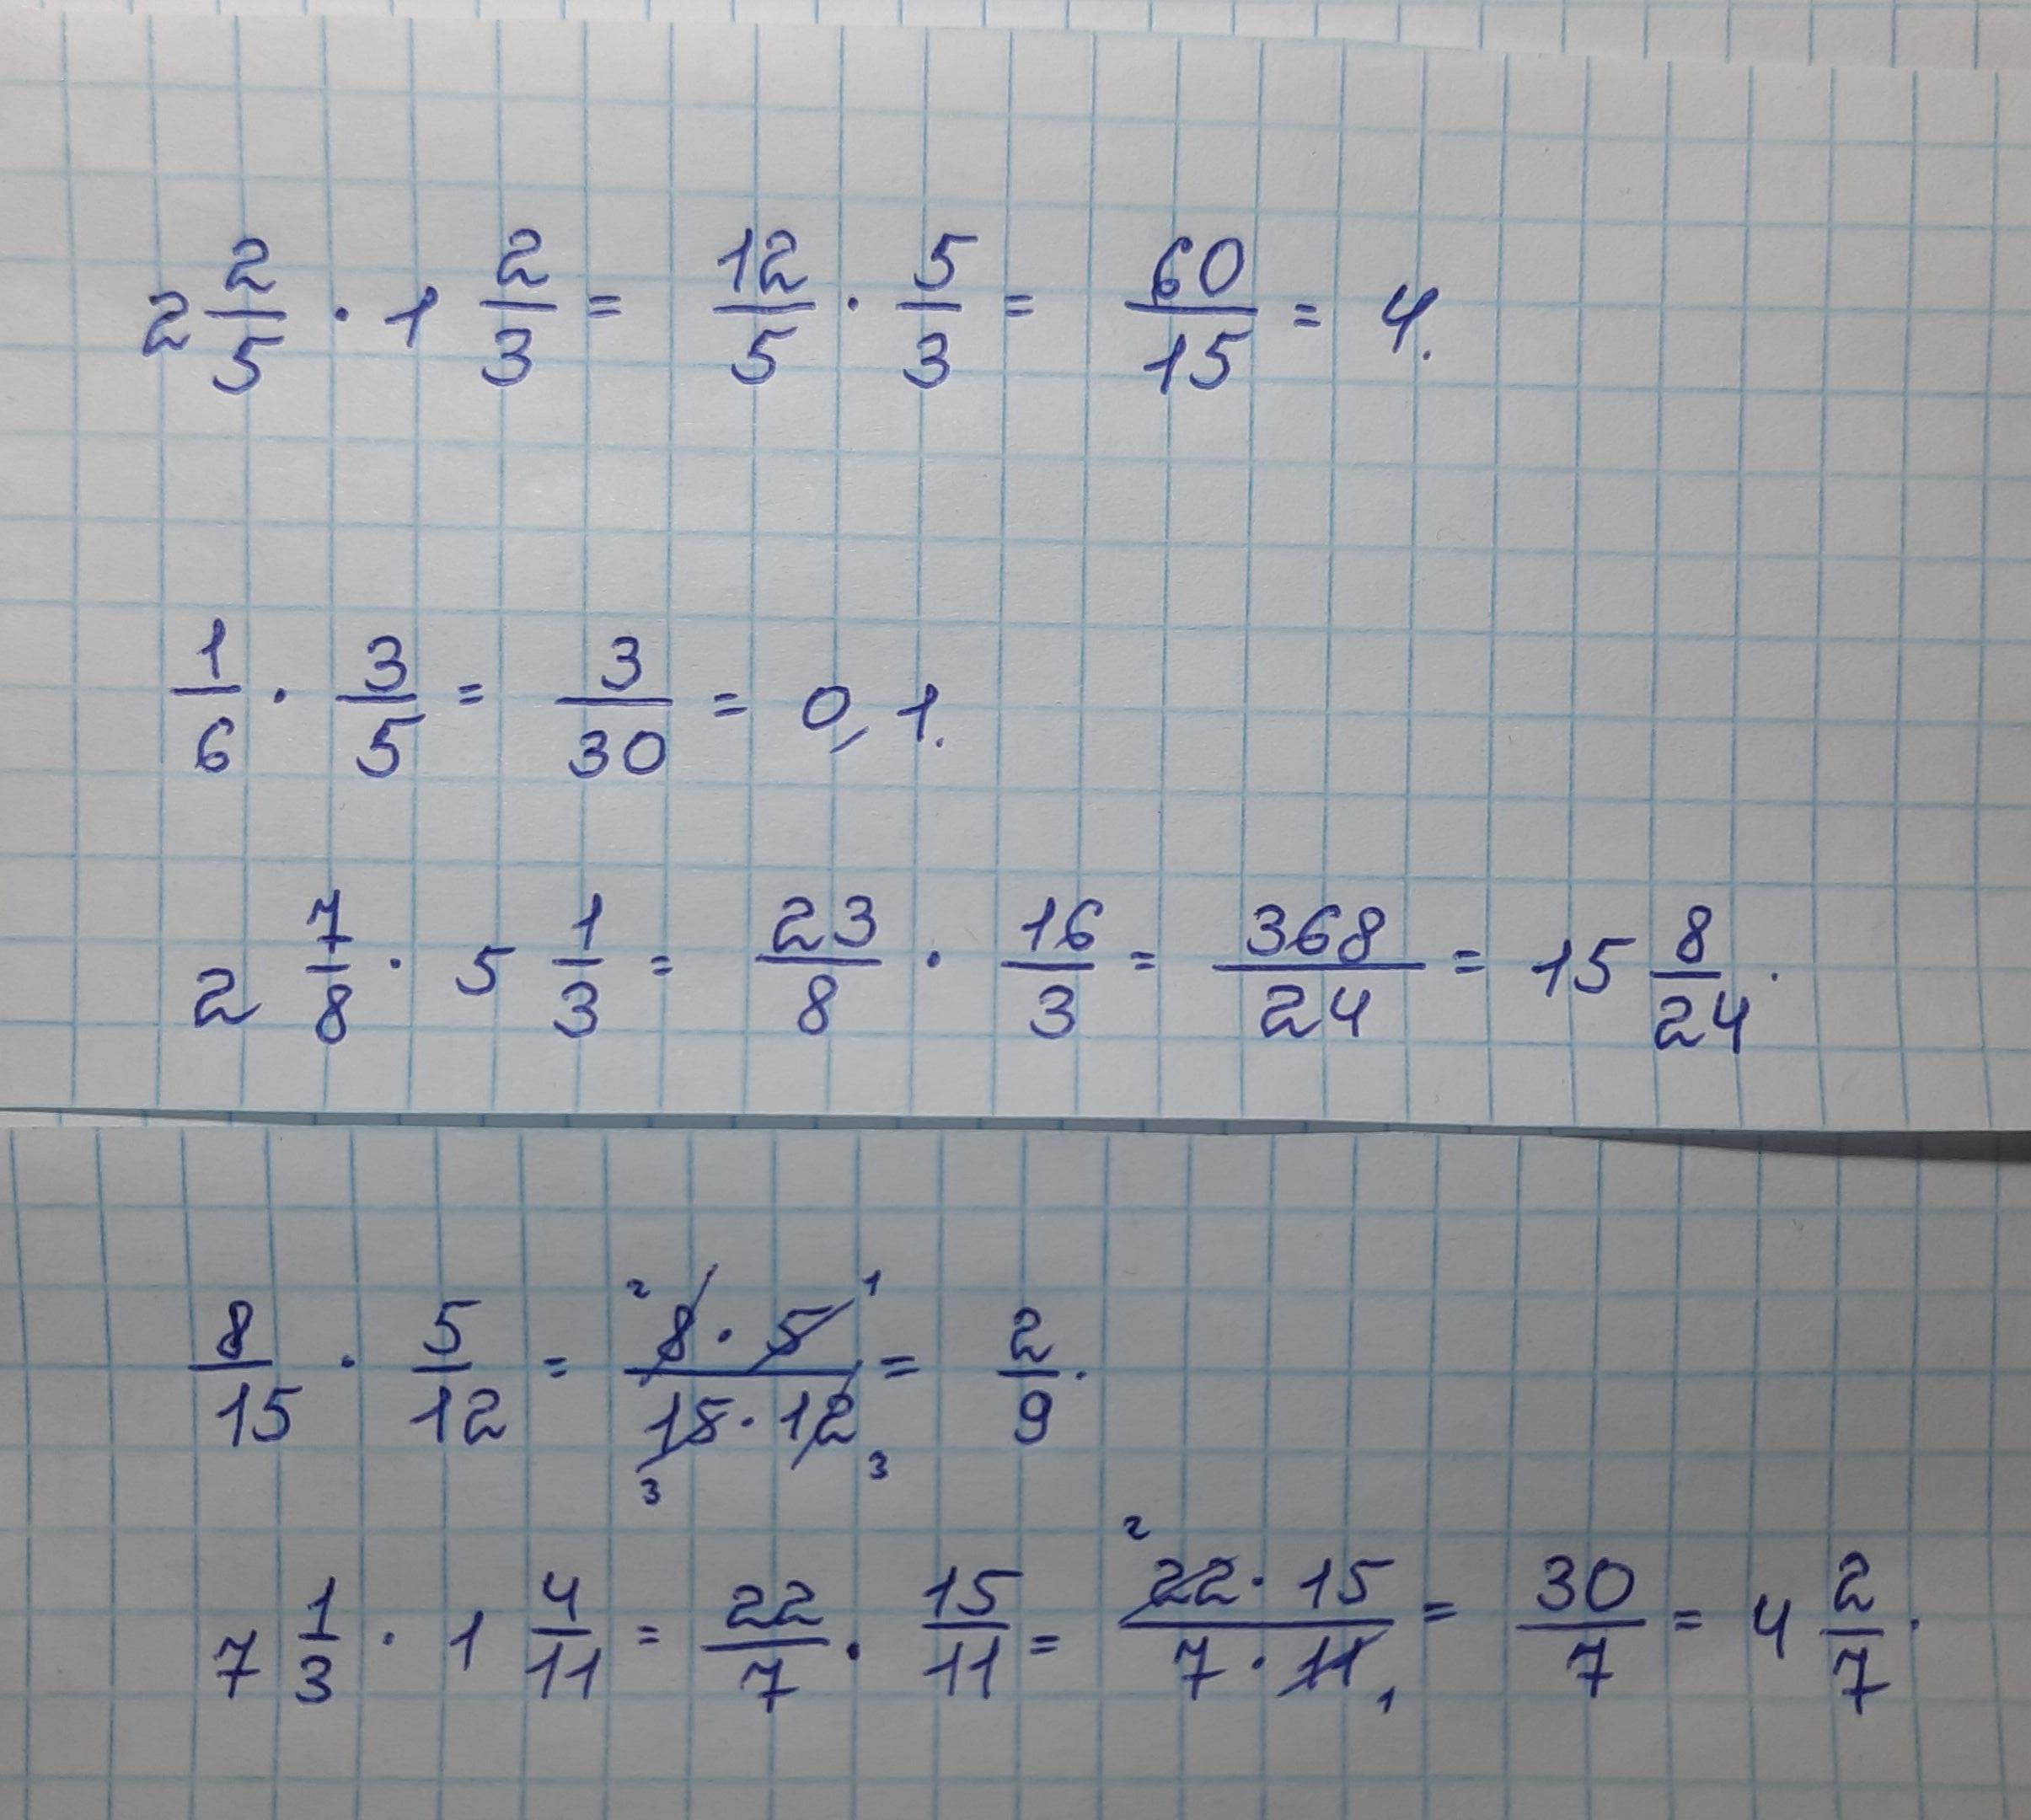 2 2/5 · 1 2/3 = 12/5 · 5/3 = 60/15 = 4.
1/6 · 3/5 = 3/30 = 0,1.
2 7/8 · 5 1/3 = 23/8 · 16/3 = 368/24 = 15 8/24.
8/15 · 5/12 = ²8 · 5¹/₃15 · 12₃ = 2/9.
7 1/3 · 1 4/11 = 22/7 · 15/11 = ²22 · 15/7 · 11₁ = 30/7 = 4 2/7.